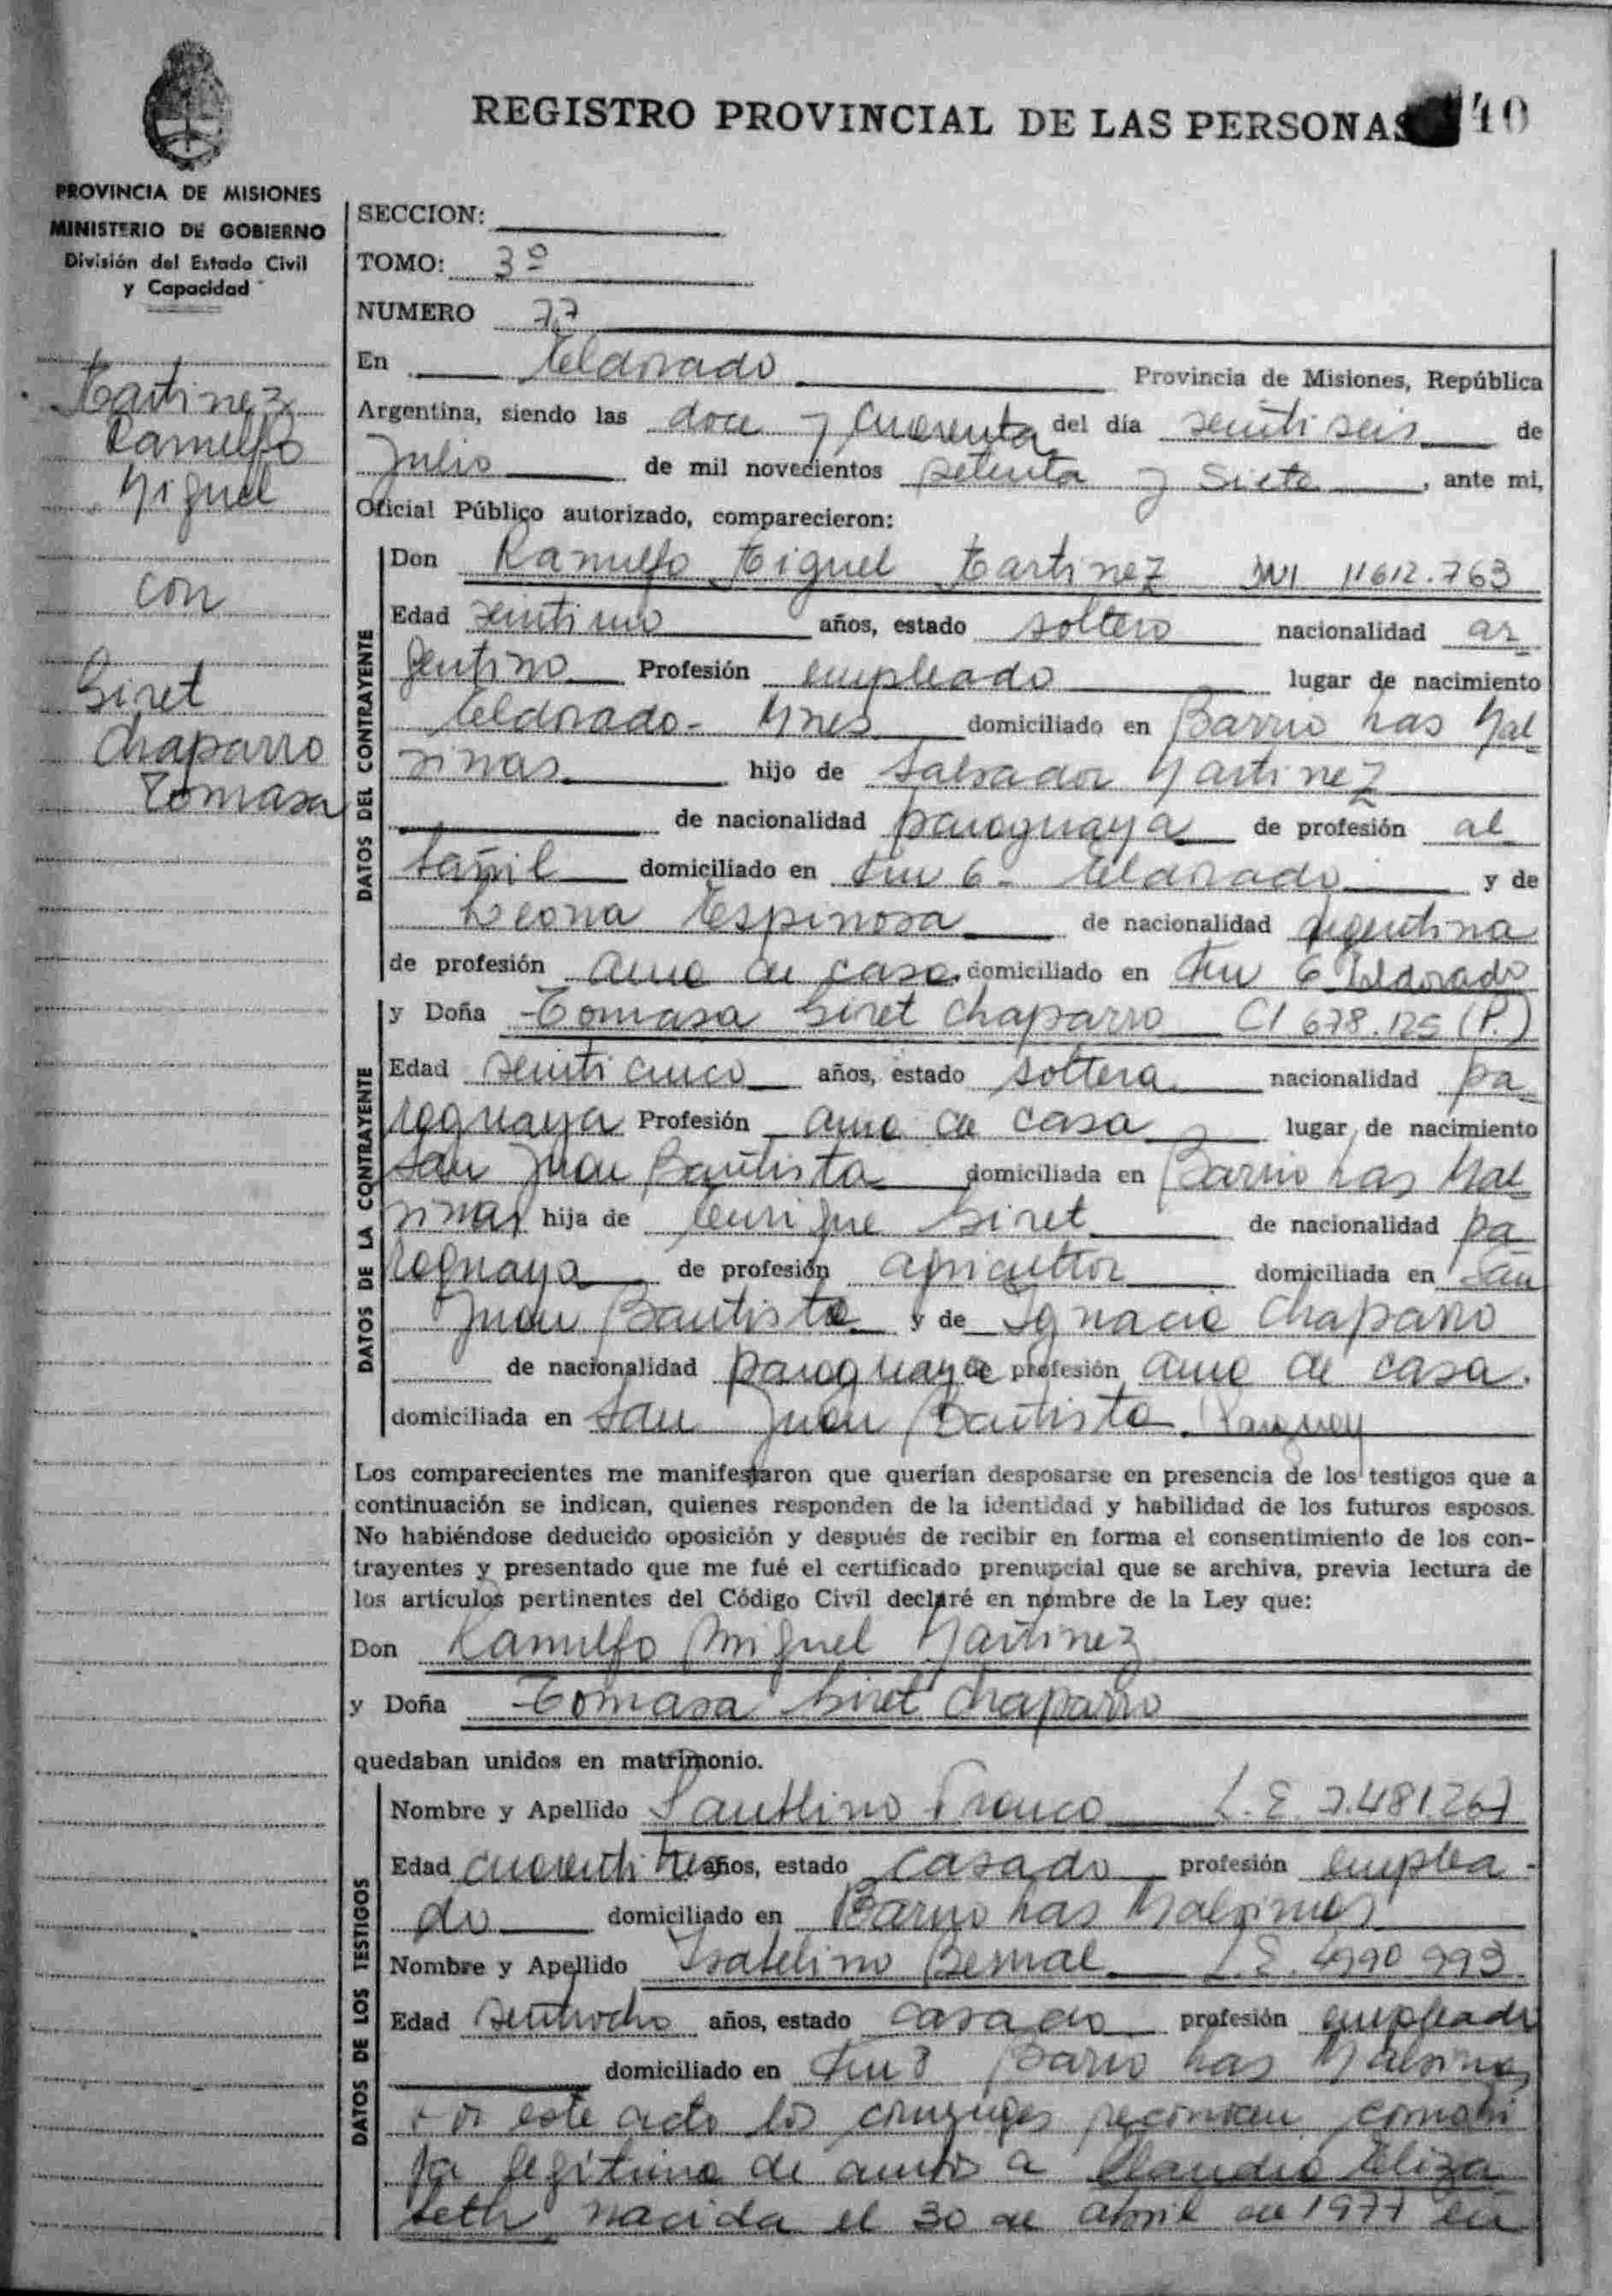 REGISTRO PROVINCIAL DE LAS PERSONAS 40
PROVINCIA DE MISIONES
MINISTERIO DE GOBIERNO
División del Estado Civil
y Capacidad
Martinez
Ramulfo
Miguel
con
Siret
Chaparro
Tomasa
SECCION:
TOMO: 3º
NUMERO 77
En Eldorado Provincia de Misiones, República
Argentina, siendo las doce y cuarenta del día veinti seis de
Julio de mil novecientos setenta y siete, ante mi,
Oficial Público autorizado, comparecieron:
DATOS DEL CONTRAYENTE
Don Ramulfo Miguel Martinez DNI 11612.763
Edad veintiuno años, estado soltero nacionalidad ar
gentino Profesión empleado lugar de nacimiento
Eldorado - Mnes domiciliado en Barrio Las Mal
vinas hijo de Salvador Martinez
de nacionalidad paraguaya de profesión al
bañil domiciliado en Km 6 - Eldorado y de
Leona Espinosa de nacionalidad argentina
de profesión ama de casa domiciliado en Km 6 Eldorado
DATOS DE LA CONTRAYENTE
y Doña Tomasa Siret Chaparro CI 678.125 (P.)
Edad veinti cinco años, estado soltera nacionalidad pa
raguaya Profesión ama de casa lugar de nacimiento
San Juan Bautista domiciliada en Barrio Las Mal
vinas hija de Enrique Siret de nacionalidad pa
raguaya de profesión agricultor domiciliada en San
Juan Bautista y de Ignacia Chaparro
de nacionalidad paraguaya de profesión ama de casa.
domiciliada en San Juan Bautista. Paraguay
Los comparecientes me manifestaron que querían desposarse en presencia de los testigos que a
continuación se indican, quienes responden de la identidad y habilidad de los futuros esposos.
No habiéndose deducido oposición y después de recibir en forma el consentimiento de los con-
trayentes y presentado que me fué el certificado prenupcial que se archiva, previa lectura de
los artículos pertinentes del Código Civil declaré en nombre de la Ley que:
Don Ramulfo Miguel Martinez
y Doña Tomasa Siret Chaparro
quedaban unidos en matrimonio.
DATOS DE LOS TESTIGOS
Nombre y Apellido Franco L.E. 7.481.267
Edad cuarenti tres años, estado casado profesión emplea-
do domiciliado en Barrio Las Malvinas
Nombre y Apellido Isabelino Bernal L.E. 4990 993
Edad veintiocho años, estado casado profesión empleado
domiciliado en Km 8 Barrio Las Malvinas
este acto los conyuges reconocen como hi
ja legitima de ambos a Claudia Eliza
beth nacida el 30 de abril de 1977 en